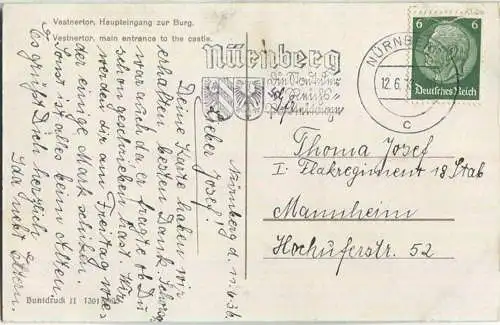 Vestnertor, Haupteingang zur Burg.
Vestnertor, main entrance to the castle.
Nürnberg
die Stadt der
Reichs-
parteitage
NÜRNB
12.6.3
c
6 6
Deutsches Reich
Nürnberg d.
Lieber Josef!
Deine Karte haben wir
erhalten besten Dank. Schorsch
war auch da, er fragte ob Du
schon geschrieben hast. Wir
werden dir am Freitag wie-
der einige Mark schicken.
Sonst ist alles beim Alten,
Es grüßt Dich herzlich
Ida nebst Eltern.
Thoma Josef
I. Flakregiment 18 Stab
Mannheim
Hochuferstr. 52
Buntdruck II